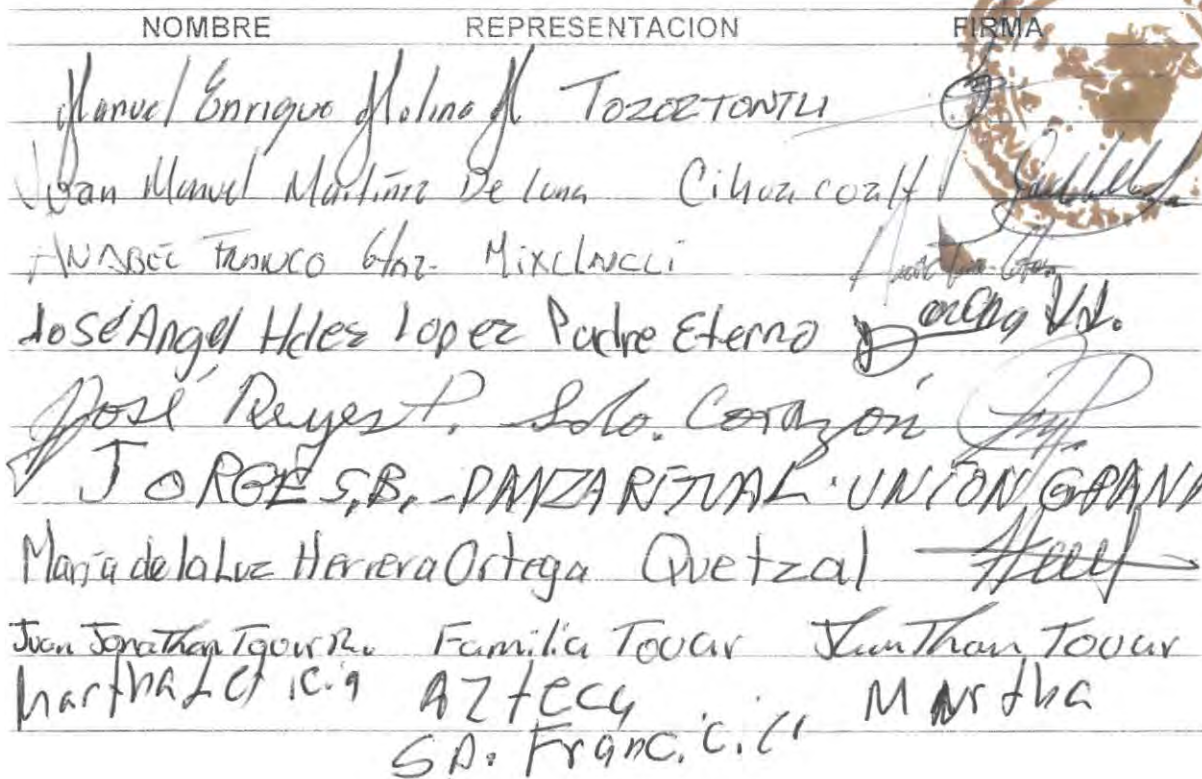 NOMBRE REPRESENTACION FIRMA
Manuel Enrique Molina M TOZOZTONTLI
Juan Manuel Martínez De Luna Cihuacoatl
ANABEL FRANCO Gtnz. MIXCUACLI
José Angel Hdez Lopez Padre Eterno
José Reyes P. Solo. Corazón
JORGE S.B. -DANZA RITUAL. UNION GRANA
María de la Luz Herrera Ortega Quetzal
Juan Jonathan Tovar Familia Tovar Juan Than Tovar
Martha Leticia AZtecy Martha